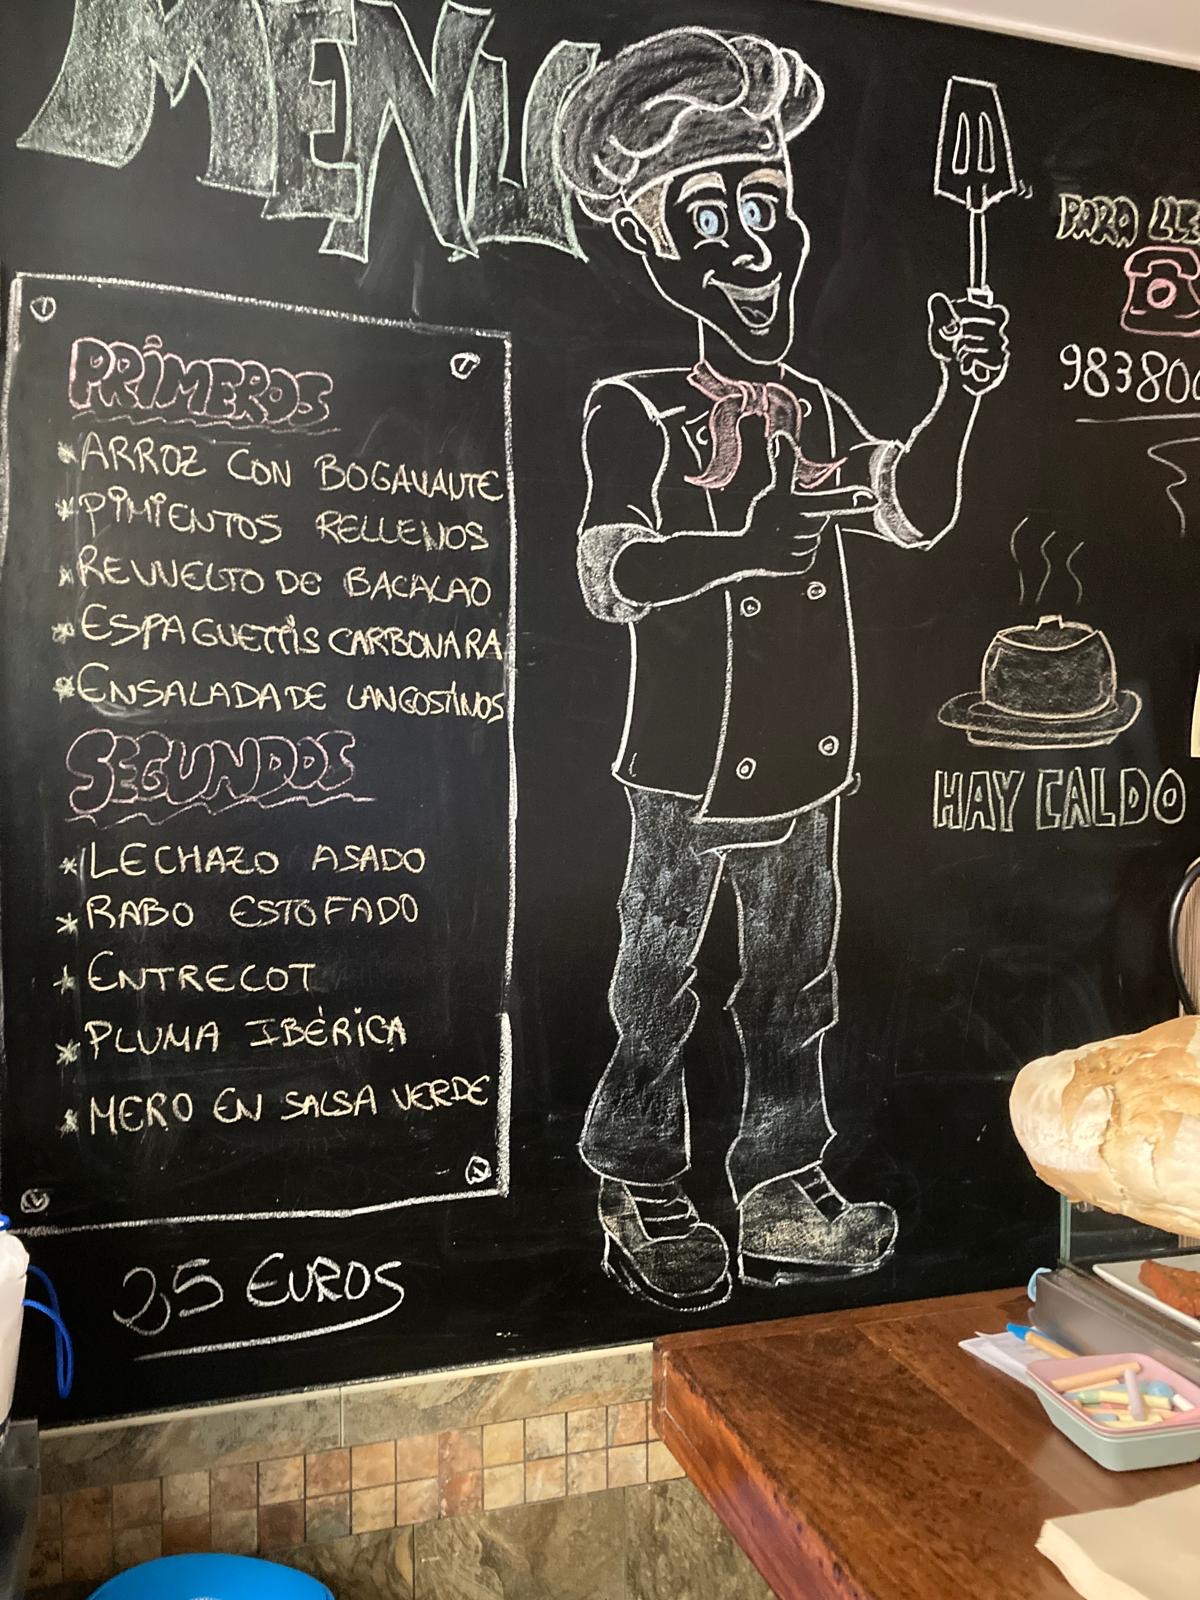 MENU
PRIMEROS
* ARROZ CON BOGAVANTE
* PIMIENTOS RELLENOS
* REVUELTO DE BACALAO
* ESPAGUETTIS CARBONARA
* ENSALADA DE LANGOSTINOS
SEGUNDOS
* LECHAZO ASADO
* RABO ESTOFADO
* ENTRECOT
* PLUMA IBÉRICA
* MERO EN SALSA VERDE
25 EUROS
PARA LLE
983800
HAY CALDO